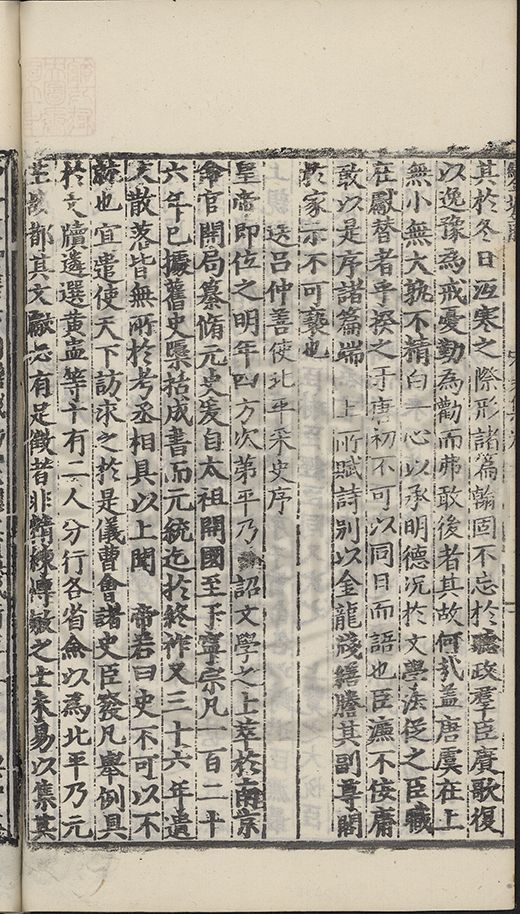 其於冬日沍寒之際形諸篇翰固不忘於聽政羣臣賡歌復
以逸豫為戒憂勤為勸而弗敢後者其故何哉蓋唐虞在上
無小無大孰不精白一心以承明德況於文學法從之臣職
在獻替者乎揆之于唐初不可以同日而語也臣濂不佞庸
敢以是序諸篇端　上所賦詩別以金龍牋繕謄其副尊閣
於家示不可褻也
送呂仲善使北平采史序
皇帝即位之明年四方次第平乃　詔文學之士萃於南京
命官開局纂脩元史爰自太祖開國至于寧宗凡一百二十
六年已據舊史檃括成書而元統迄於終祚又三十六年遺
文散落皆無所於考丞相具以上聞　帝若曰史不可以不
成也宜遣使天下訪求之於是儀曹會諸史臣發凡舉例具
於文牘遴選黃盅等十有二人分行各省僉以為北平乃元
故都其文獻必有足徵者非精練博敏之士未易以集其